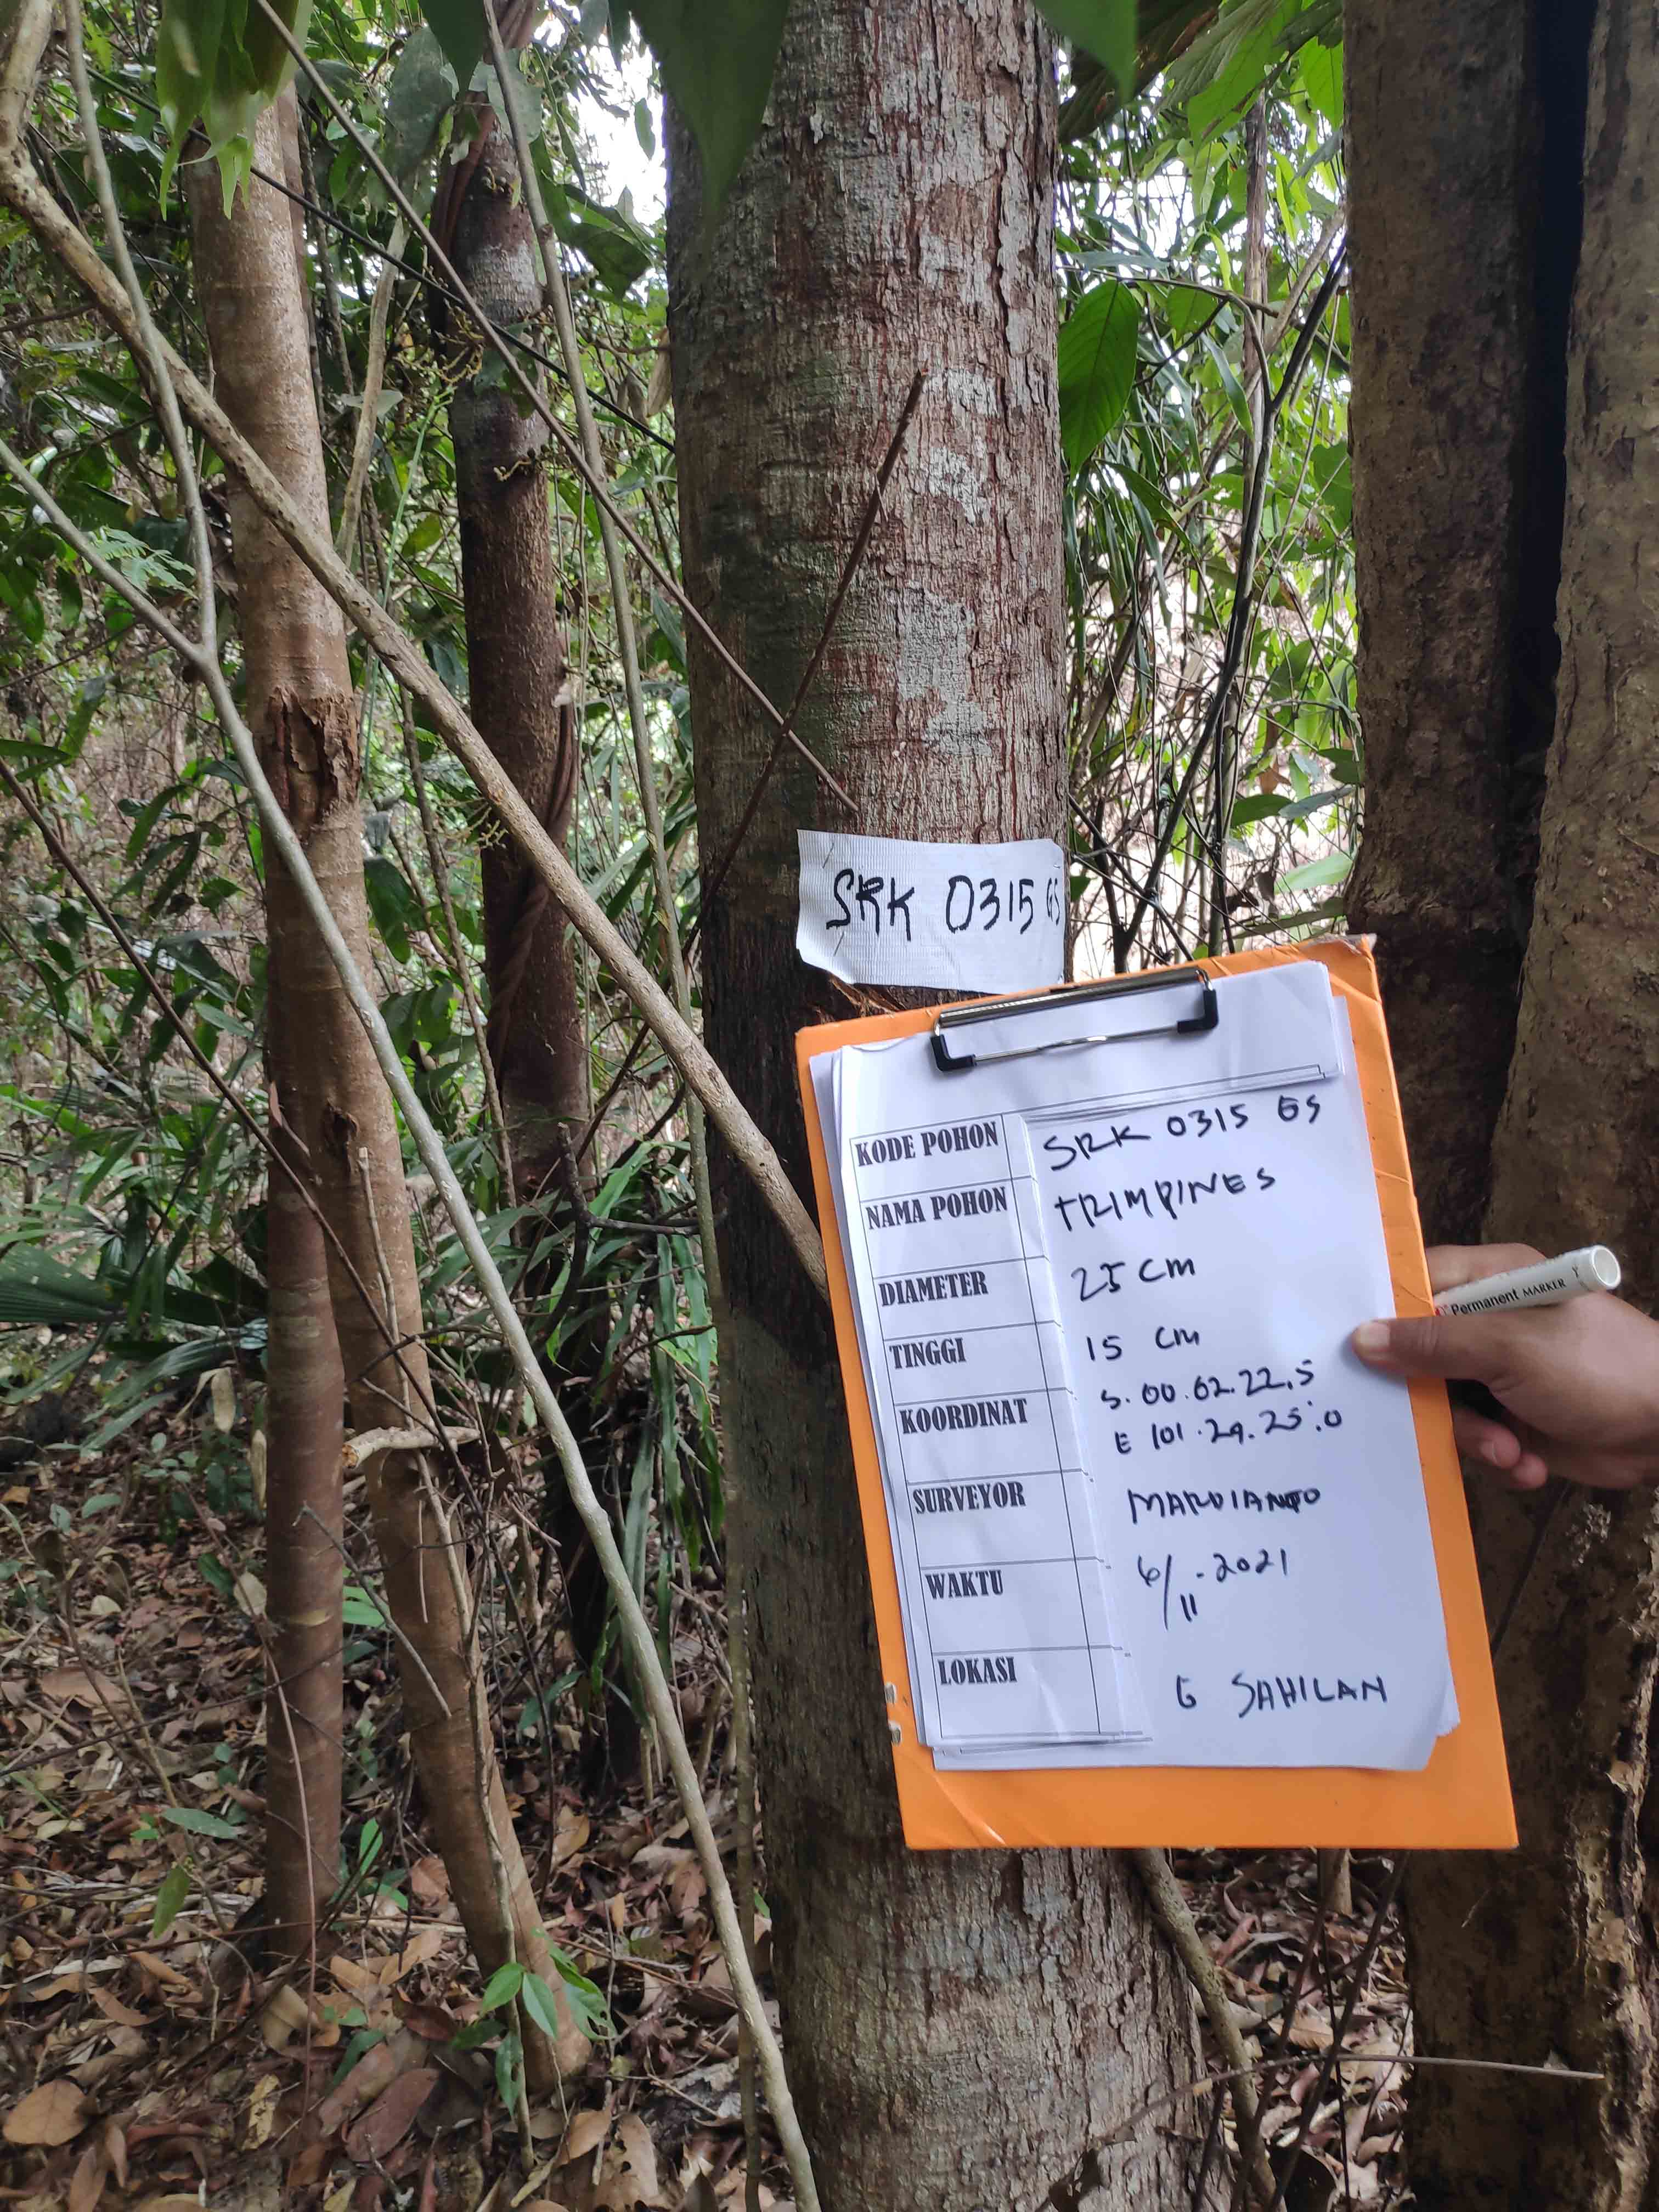 SRK 0315 GS
KODE POHON SRK 0315 GS
NAMA POHON TRIMPINES
DIAMETER 25 cm
TINGGI 15 cm
KOORDINAT S. 00.02.22,5
E 101.29.25".0
SURVEYOR MARDIANTO
WAKTU 6/11-2021
LOKASI G SAHILAN
Permanent MARKER